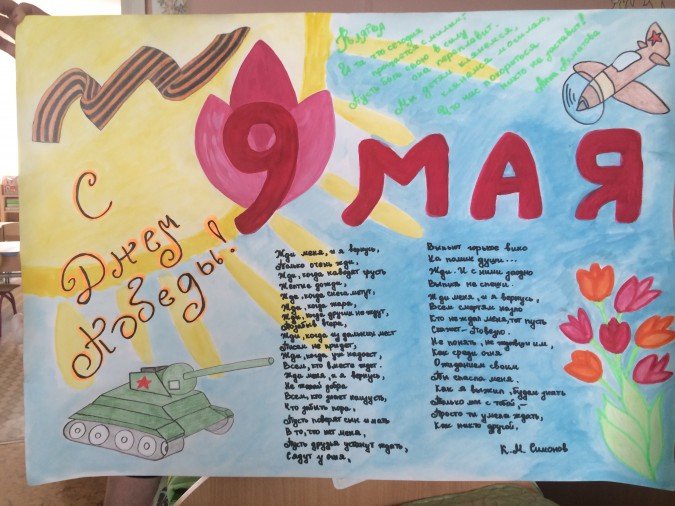 С
Днем
Победы!
9 МАЯ
Клятва
И та, что сегодня
прощается с милым-
Пусть боль свою в силу
она переплавит.
Мы детям клянемся,
клянемся могилам,
Что нас покориться
никто не заставит!
Анна Ахматова
Жди меня, и я вернусь,
Только очень жди,
Жди, когда наводят грусть
Желтые дожди,
Жди, когда снега метут,
Жди, когда жара,
Жди, когда других не ждут,
Позабыв вчера,
Жди, когда из дальних мест
Писем не придет,
Жди, когда уж надоест
Всем, кто вместе ждет.
Жди меня, и я вернусь,
Не желай добра
Всем, кто знает наизусть,
Что забыть пора.
Пусть поверят сын и мать
В то, что нет меня,
Пусть друзья устанут ждать,
Сядут у огня,
Выпьют горькое вино
На помин души...
Жди. И с ними заодно
Выпить не спеши.
Жди меня, и я вернусь,
Всем смертям назло
Кто не ждал меня, тот пусть
Скажет- Повезло
Не понять, не ждавшим им,
Как среди огня
Ожиданием своим
Ты спасла меня.
Как я выжил, будем знать
Только мы с тобой,-
Просто ты умела ждать,
Как никто другой.
К.М. Симонов